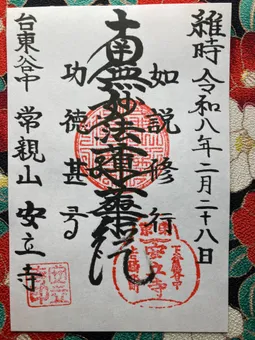 維時 令和八年二月二十八日
如説修行
南無妙法蓮華経
功徳甚多
台東谷中 常親山 安立寺
安立寺